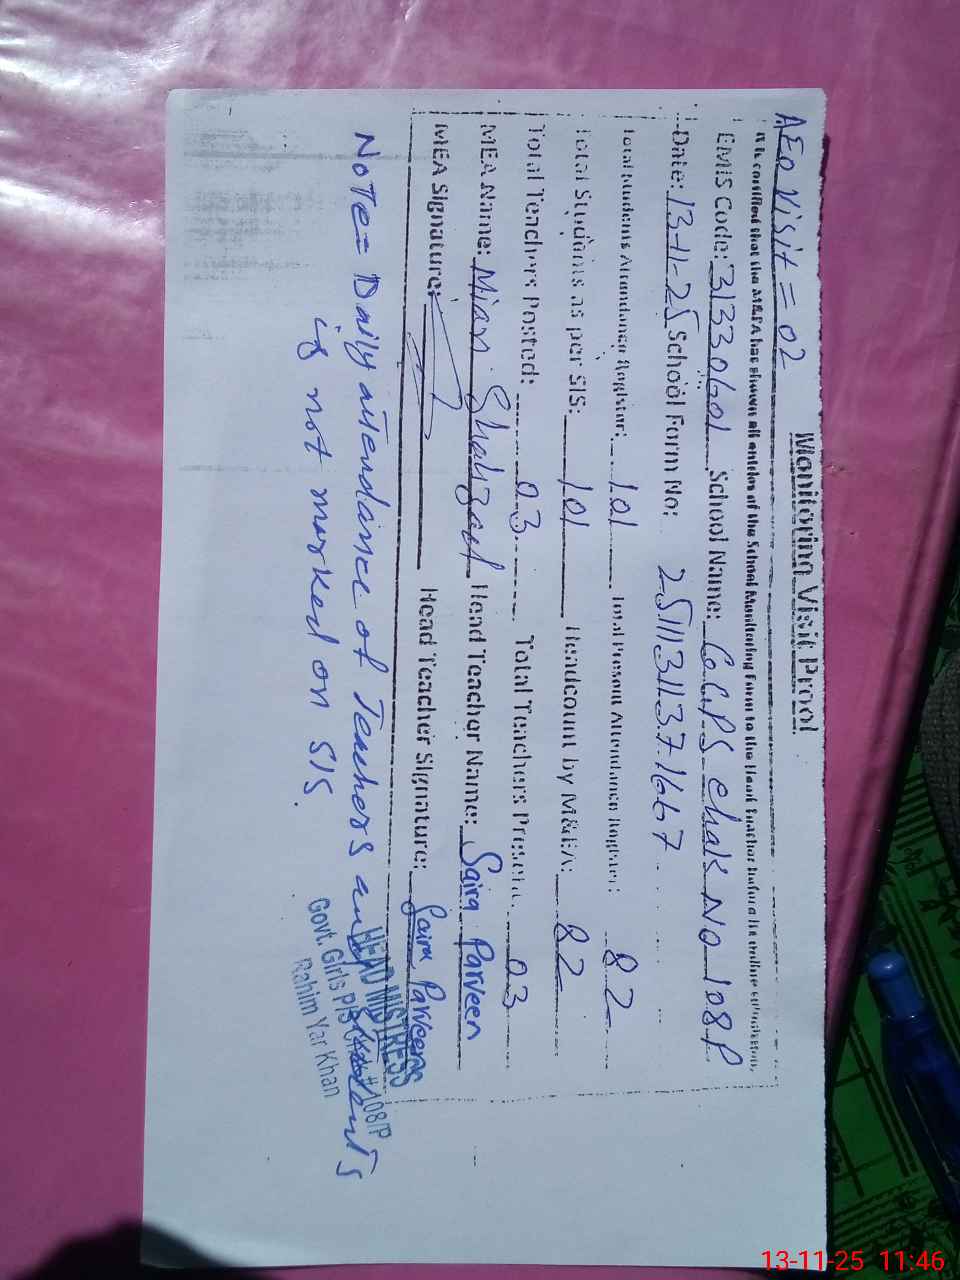 Monitoring Visit Proof
AEO Visit = 02
It is certified that the M&EA has shown all entries of the School Monitoring Form to the Head Teacher before the online submission.
EMIS Code: 31330601 School Name: GGPS chak NO 108 P
Date: 13-11-25 School Form No: 25111311371667
Total Students Attendance Register: 101 Total Present Attendance Register: 82
Total Students as per SIS: 101 Headcount by M&EA: 82
Total Teachers Posted: 03 Total Teachers Present: 03
MEA Name: Mian Shahzad Head Teacher Name: Saira Parveen
MEA Signature: Head Teacher Signature: Saira Parveen
NoTe= Daily attendance of Teachers and students
is not marked on SIS.
HEAD MISTRESS
Govt. Girls P/S Ch # 108/P
Rahim Yar Khan
13-11-25 11:46